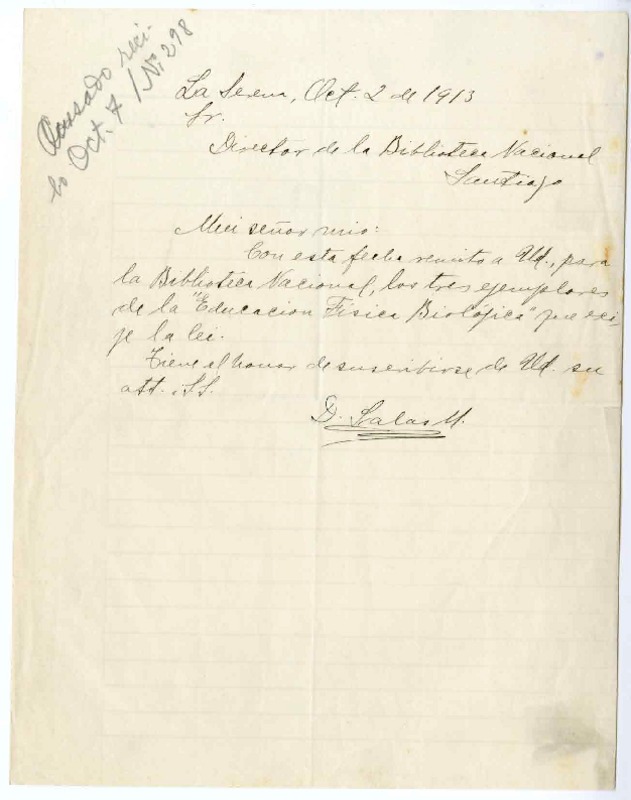 Acusado reci-
bo Oct. 7 / Nº 298
La Serena, Oct. 2 de 1913
Sr.
Director de la Biblioteca Nacional
Santiago
Mui señor mio:
Con esta fecha remito a Ud., para
la Biblioteca Nacional, los tres ejemplares
de la "Educacion Física Biolójica" que exi-
je la lei.
Tiene el honor de suscribirse de Ud. su
att. S.S.
D. Salas M.